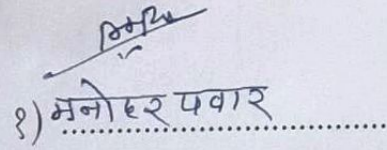 १) मनोहर पवार